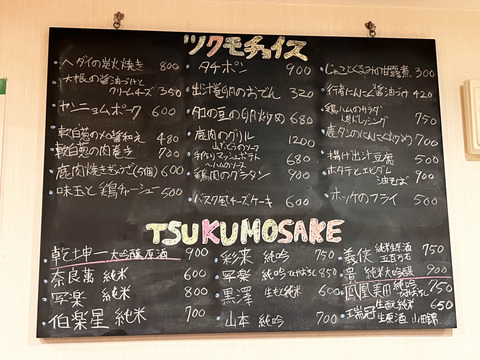 ツクモチョイス
ヘダイの炭火焼き 800
大根の醤油づけと
クリームチーズ 350
ヤンニョムポーク 600
軟白葱のヌタ和え 480
軟白葱の肉巻き 700
鹿肉焼きぎょうざ(5個) 600
味玉と鶏チャーシュー 500
タチポン 900
出汁巻卵のおでん 320
タコの豆の卵炒め 680
鹿肉のグリル 1200
山ぶどうのソース
手作りマッシュポテト 680
〜ハムのソース
鶏肉のグラタン 900
バスク風チーズケーキ 600
じゃことくるみの甘露煮 300
行者にんにく醤油づけ 420
鶏ハムのサラダ 750
ドレッシング
鹿タンのにんにく炒め 700
揚げ出汁豆腐 500
ホタテとエビダシ 900
油そば
ホッケのフライ 500
TSUKUMOSAKE
乾坤一 大吟醸原酒 900
奈良萬 純米 600
写楽 純米 800
伯楽星 純米 700
彩來 純吟 750
写楽 純吟 ひやおろし 850
黒澤 生もと純米 600
山本 純吟 700
義侠 純米原酒 五百万石 750
純米大吟醸 900
鳳凰美田 純吟 ひやおろし 750
瑞冠 生酛純米 650
生原酒 山田錦